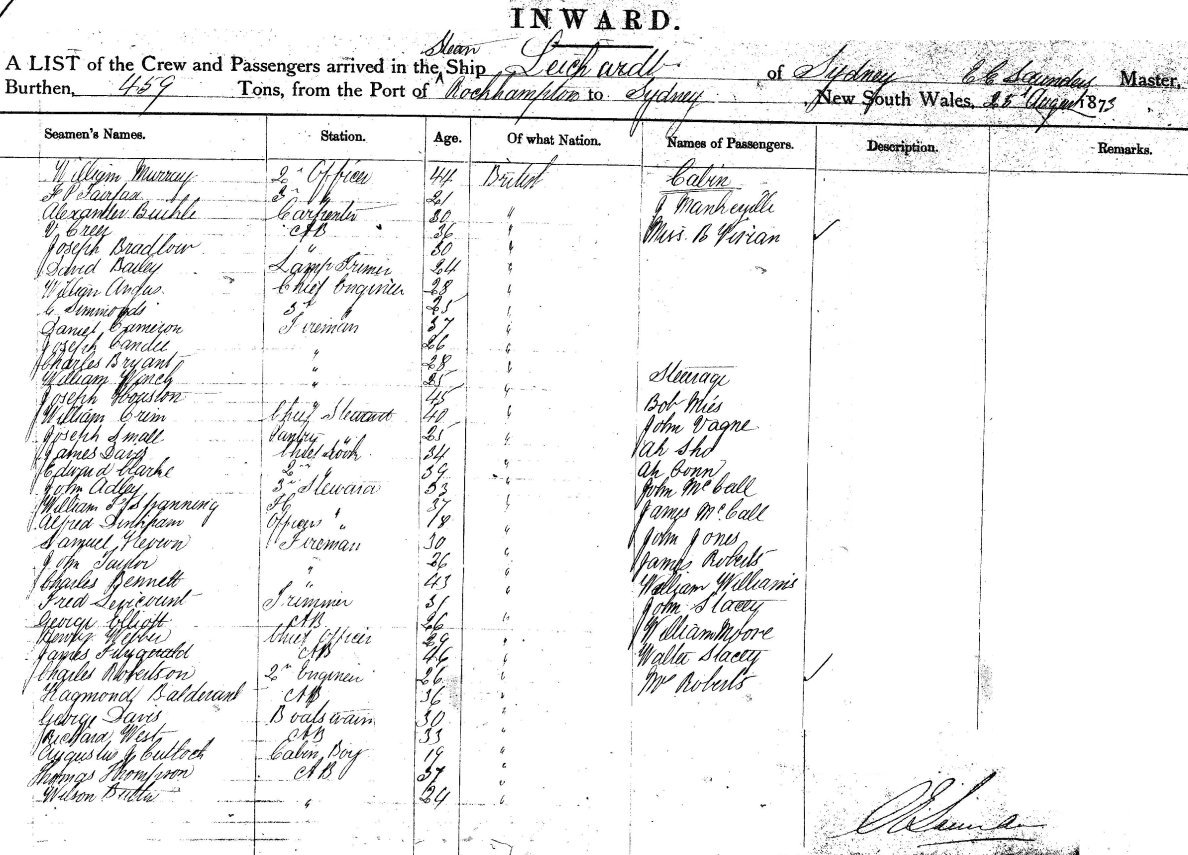 INWARD.
Steam
A LIST of the Crew and Passengers arrived in the ^ Ship Leichardt of Sydney E C Saunders Master,
Burthen, 459 Tons, from the Port of Rockhampton to Sydney New South Wales, 25th August 1873
Seamen's Names. Station. Age. Of what Nation. Names of Passengers. Description. Remarks.
William Murray 2nd Officer 44 British Cabin
F P Fairfax 3rd " 21 "
Alexander Carpenter 30 " J
V Creer AB 36 " Miss B Vivian ✓
Joseph Bradlow " 30 "
David Bailey Lamp Trimer 24 "
William Angus Chief Engineer 28 "
C Simmonds 3rd " 25 "
Daniel Cameron Fireman 37 "
Joseph " 26 "
Charles Bryant " 28 "
William " 25 " Steerage
Joseph Houston " 45 " Bob Mies
William Crim Chief Steward 40 " John Vagne
Joseph Small Pantry " 25 " Ah Sho
James Davis Chief Cook 34 " Ah Conn
Edward Clarke 2nd " 39 " John McCall
John Adley 3rd Steward 33 " James McCall
William Spanning " 37 "
Alfred Dinham Officers " 18 " John Jones
Samuel Fireman 30 " James Roberts
John Taylor " 26 "
Charles Bennett " 43 " William Williams
Fred Trimmer 31 " John Stacey
George Elliott AB 26 " William Moore
Henry Webber Chief Officer 29 "
James Fitzgerald AB 46 " Walter Stacey
Charles Robertson 2nd Engineer 26 " Mrs Roberts ✓
AB 36 "
George Davis Boatswain 30 "
Richard West AB 33 "
Augustus J Culloch Cabin Boy 19 "
Thomas Thompson AB 37 "
Wilson Butler " 24 "